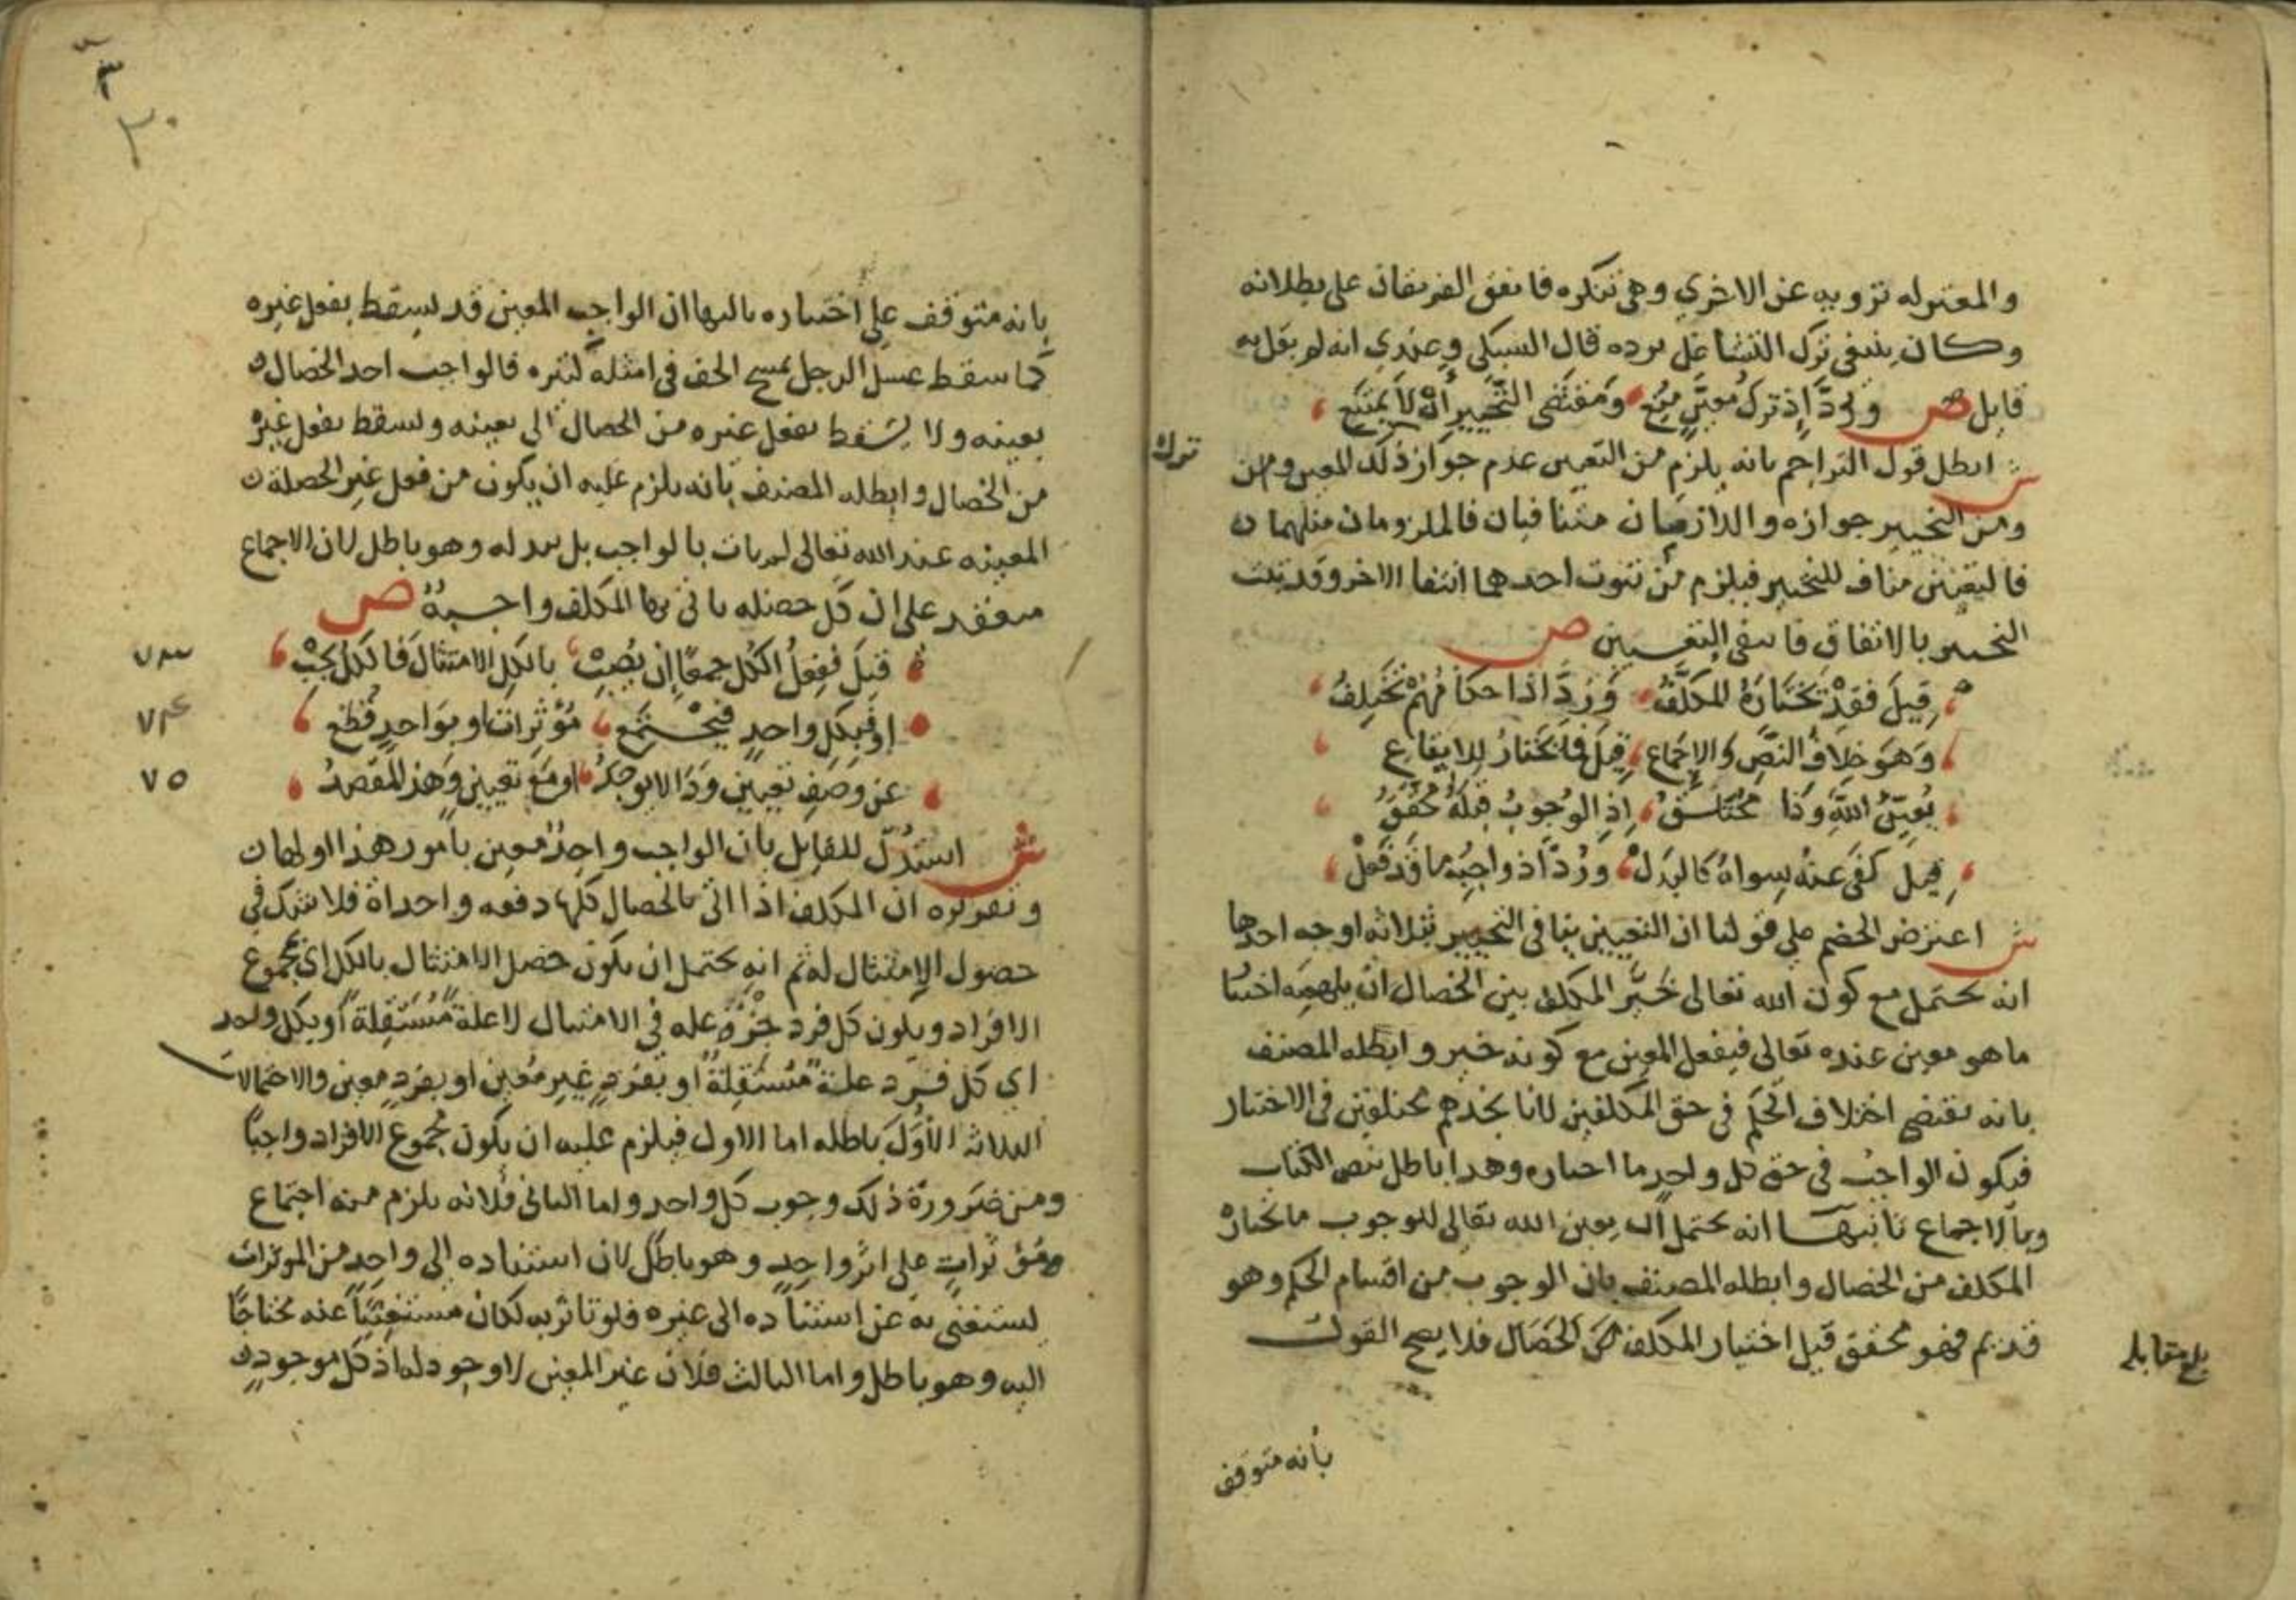 والمعتزله ترويه عن الاخري وهي تنكره فاتفق الفريقان على بطلانه
وكان ينبغي ترك التشاغل برده قال السبكي وعندي انه لم يقل به
قايل ص ورد اذ ترك معين منع ومقتضى التخيير ان لا يمتنع
ش ابطل قول التراجم بانه يلزم من التعيين عدم جواز ذلك المعين ومن
ترك
ومن التخيير جوازه واللازمان متنافيان فالملزومان مثلهما
فالتعيين مناف للتخيير فيلزم من ثبوت احدهما انتفا الاخر وقد ثبت
التخيير بالاتفاق فانتفى التعيين ص
قيل فقد تختاره المكلف ورد اذا حكا فهم تختلف
وهو خلاف النص والاجماع قيل فما يختار للايقاع
يعين الله وذا اذ الوجوب قبله محقق
قيل كفى عنه سواه كالبدل ورد اذ واجبها قد فعل
ش اعترض الخصم على قولنا ان التعيين ينافي التخيير بثلاثه اوجه احدها
انه يحتمل مع كون الله تعالى خير المكلف بين الخصال ان يلهمه اختيا
ما هو معين عنده تعالى فيفعل المعين مع كونه خير وابطله المصنف
بانه يقتضي اختلاف الحكم في حق المكلفين لانا نجدهم مختلفين في الاختيار
فيكون الواجب في حق كل واحد ما اختاره وهذا باطل بنص الكتاب
وبالاجماع ثانيها انه يحتمل ان يعين الله تعالى للوجوب ما يختاره
المكلف من الخصال وابطله المصنف بان الوجوب من اقسام الحكم وهو
قديم فهو محقق قبل اختيار المكلف من الخصال فلا يصح القول
بلغ مقابله
بانه متوقف
٣٠
بانه متوقف على اختياره ثالثها ان الواجب المعين قد يسقط بفعل غيره
كما سقط غسل الرجل بمسح الخف في امثله كثيره فالواجب احد الخصال
بعينه ولا يسقط بفعل غيره من الخصال الى بعينه ويسقط بفعل غيره
من الخصال وابطله المصنف بانه يلزم عليه ان يكون من فعل غير الخصلة
المعينه عند الله تعالى لم يات بالواجب بل ببدله وهو باطل لان الاجماع
منعقد على ان كل خصله ياتي بها المكلف واجبة ص
قيل ففعل الكل جمعا ان يصب بالكل الامتثال فالكل يجب ٧٣
او فبكل واحد فيجتمع مؤثرات او بواحد قطع ٧٤
عن وصف تعيين وذا لا يوجد او مع تعيين وهذا المقصد ٧٥
ش استدل للقايل بان الواجب واحد معين بامور هذا اولها
وتقريره ان المكلف اذا اتى بالخصال كلها دفعه واحداة فلا شك في
حصول الامتثال له ثم انه يحتمل ان يكون حصل الامتثال بالكل اي مجموع
الافراد ويكون كل فرد جزؤ عله في الامتثال لا علة مستقلة او بكل واحد
اي كل فرد علة مستقلة او بفرد غير معين او بفرد معين والاحتمالات
الثلاثه الاول باطله اما الاول فيلزم عليه ان يكون مجموع الافراد واجبا
ومن ضرورة ذلك وجوب كل واحد واما الثاني فلانه يلزم منه اجتماع
مؤثرات على اثر واحد وهو باطل لان استناده الى واحد من المؤثرات
يستغني به عن استناده الى غيره فلو تاثر به لكان مستغنيا عنه محتاجا
اليه وهو باطل واما الثالث فلان غير المعين لا وجود له اذ كل موجود